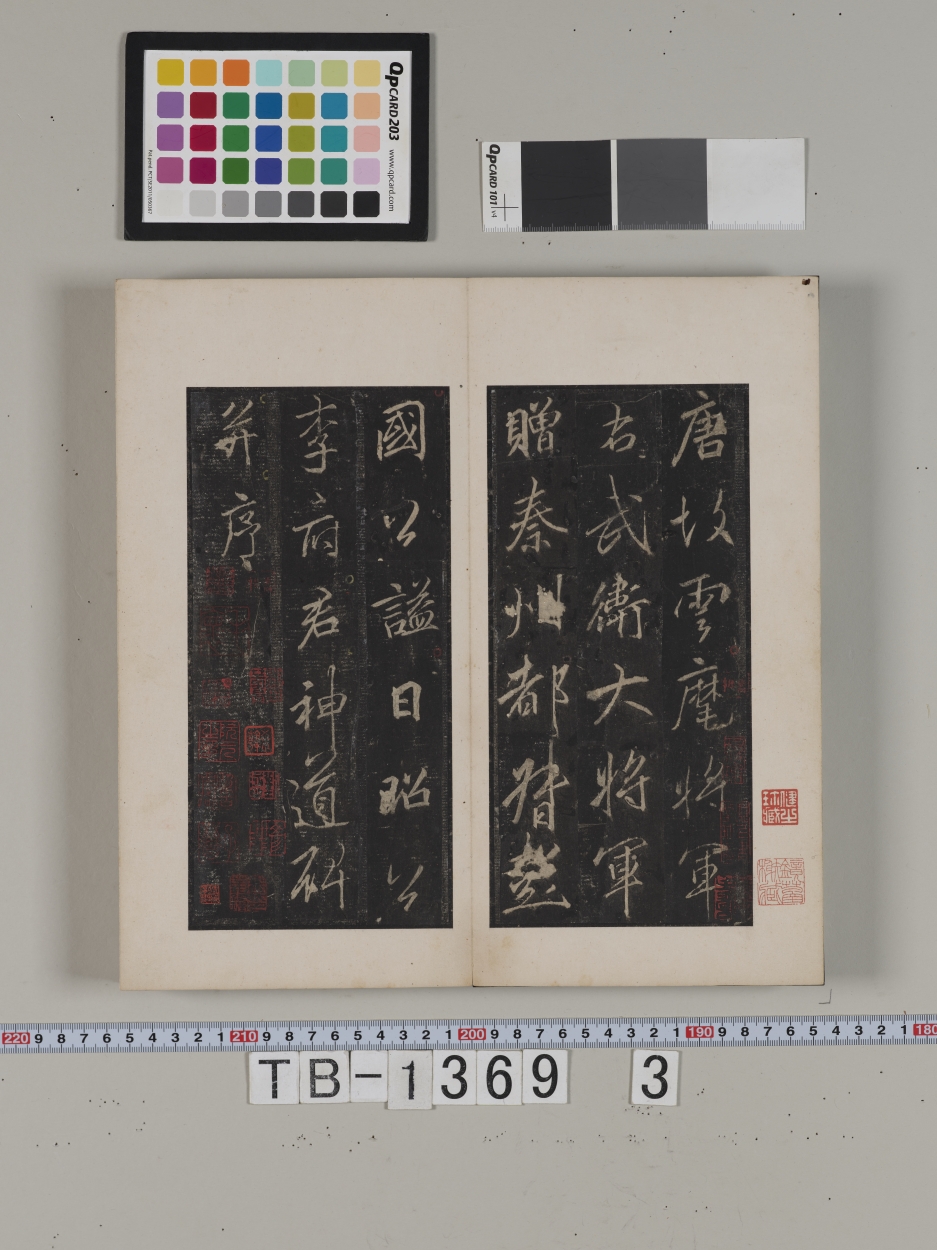 QPCARD 203 www.qpcard.com
QPCARD 101 v4
唐故雲麾將軍
右武衛大將軍
贈秦州都督彭
國公謚曰昭公
李府君神道碑
并序
220 9 8 7 6 5 4 3 2 1 210 9 8 7 6 5 4 3 2 1 200 9 8 7 6 5 4 3 2 1 190 9 8 7 6 5 4 3 2 1 180
TB-1369 3